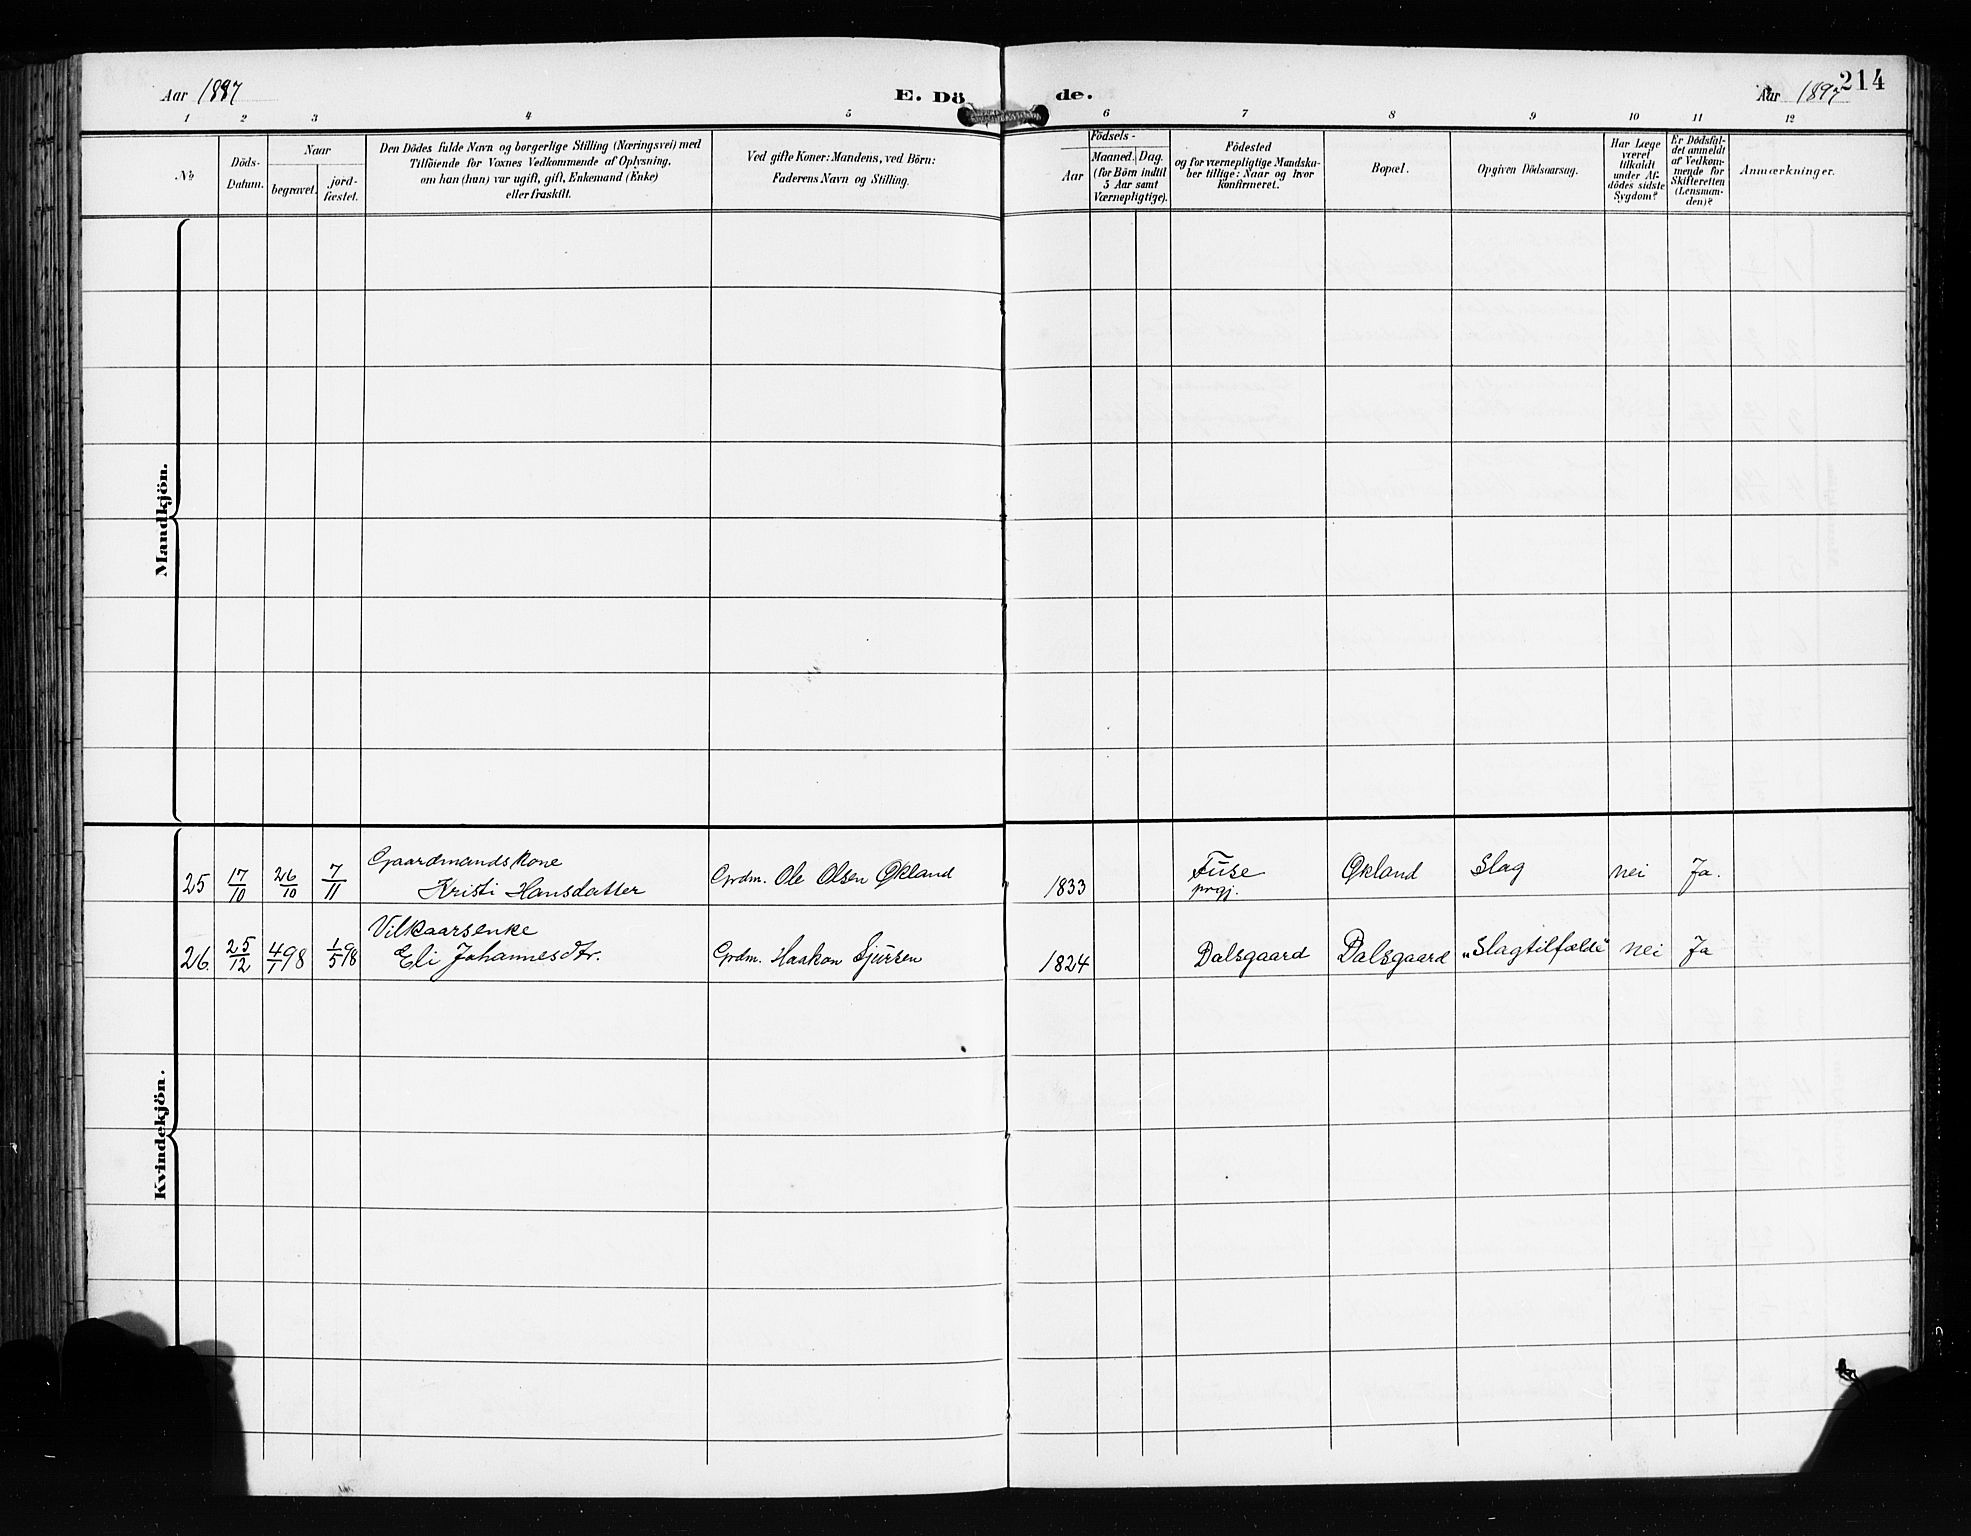 Aar 1897
E. Dö de.
Aar 1897
214
1 2 3 4 5 6 7 8 9 10 11 12
No
Döds-
Datum.
Naar
begravet.
jord-
fæstet.
Den Dödes fulde Navn og borgerlige Stilling (Næringsvei) med
Tilföiende for Voxnes Vedkommende af Oplysning,
om han (hun) var ugift, gift, Enkemand (Enke)
eller fraskilt.
Ved gifte Koner: Mandens, ved Börn:
Faderens Navn og Stilling.
Födsels-
Aar
Maaned. Dag.
(for Börn indtil
5 Aar samt
Værnepligtige).
Födested
og for værnepligtige Mandska-
ber tillige: Naar og hvor
konfirmeret.
Bopæl.
Opgiven Dödsaarsag.
Har Læge
været
tilkaldt
under Af-
dödes sidste
Sygdom?
Er Dödsfal-
det anmeldt
af Vedkom-
mende for
Skifteretten
(Lensman-
den)?
Anmærkninger.
Mandkjön.
Kvindekjön.
25 17/10 26/10 7/11 Gaardmandskone
Kristi Hansdatter Grdm. Ole Olsen Økland 1833 Fuse
prgj. Økland Slag nei Ja.
26. 25/12 4/1 98 1/5 98 Vilkaarsenke
Eli Johannesdtr. Grdm. Haakon Sjursen 1824 Dalsgaard Dalsgaard „Slagtilfælde" nei Ja